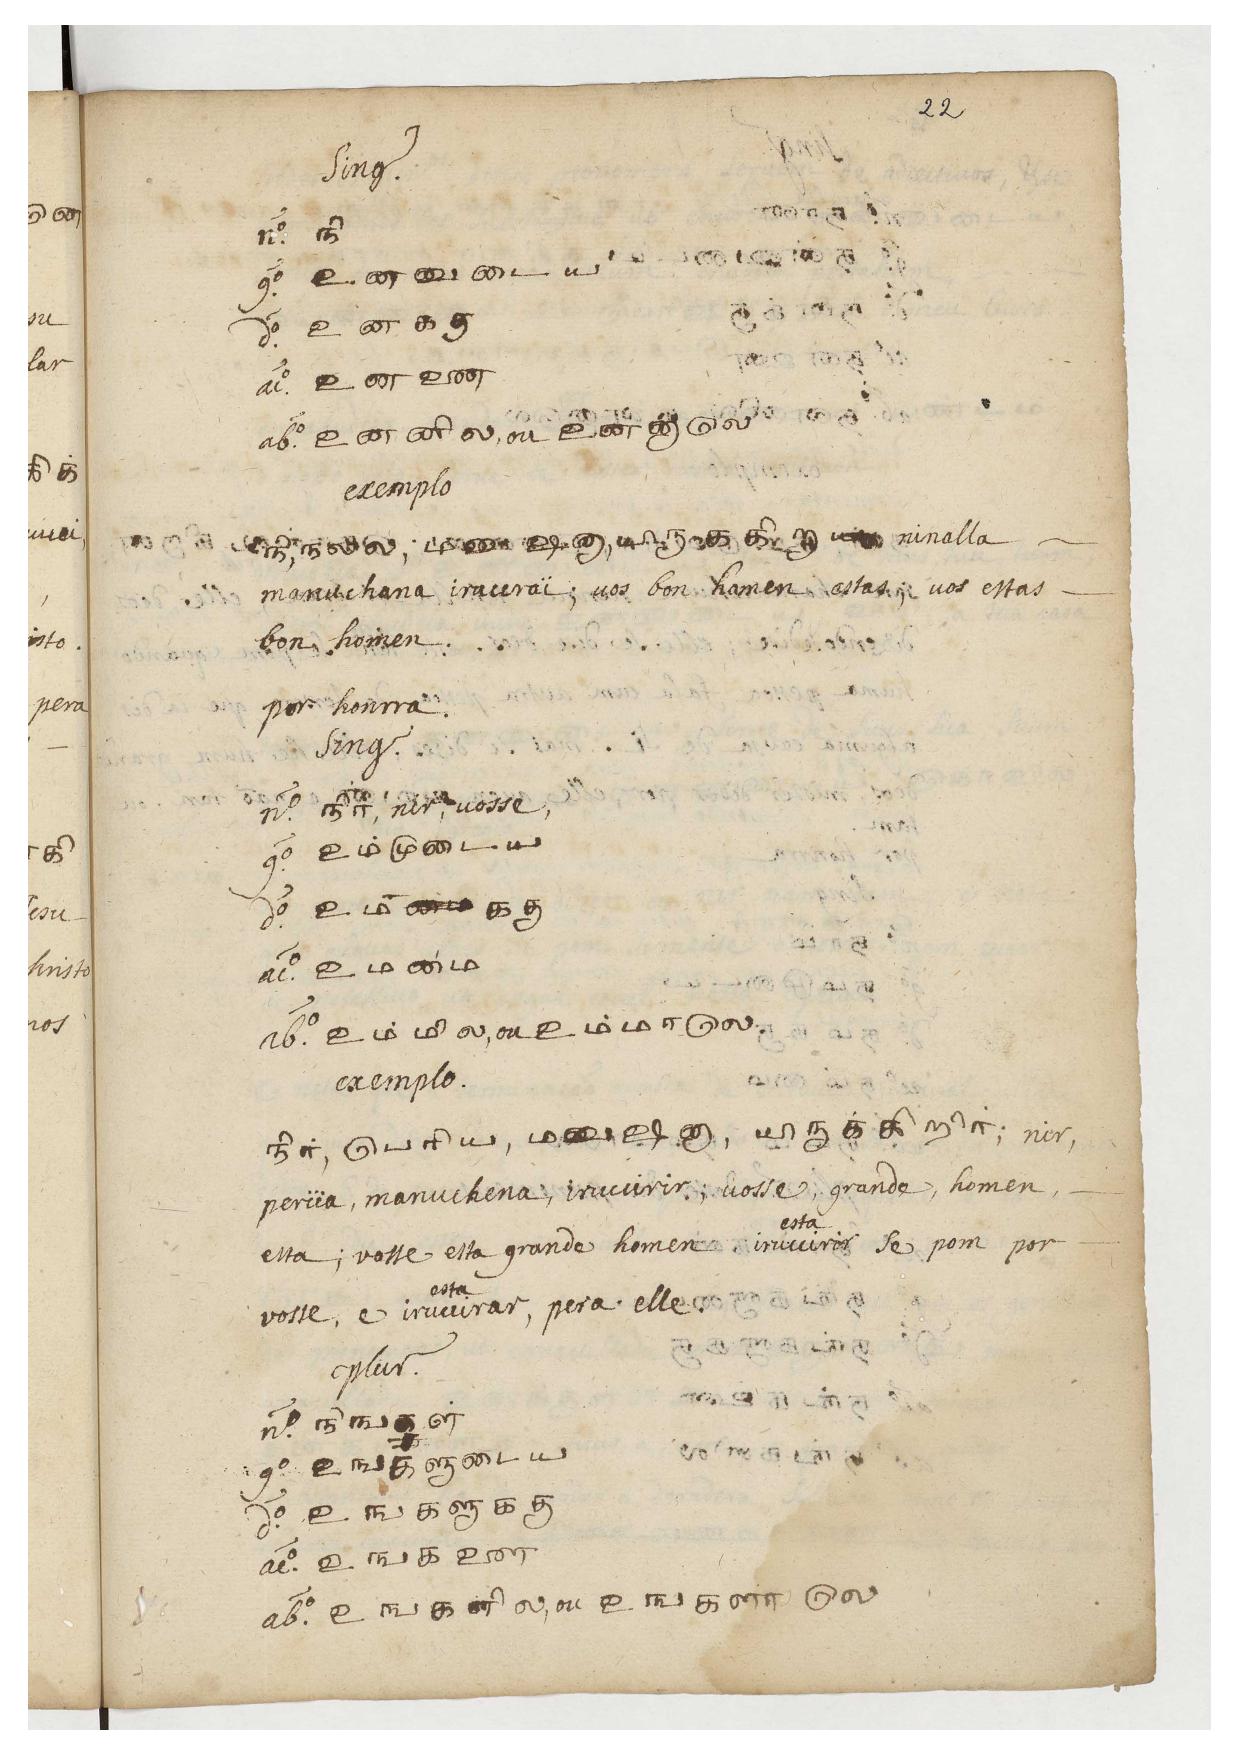 22
Sing.r
n.o நி
g.o உனவுடைய
d.o உனகது
ac.o உனஉண
ab.o உனனில, ou
exemplo
நி, நலல, ninalla
manuchana irucıraï; uos bon homen estas; uos estas
bon homen.
por honrra.
Sing.r
n.o நிர், nir, uosse,
g.o உம்முடைய
d.o உம கது
ac.o உமண்ம
ab.o உம்மில, ou உம்மாடுல.
exemplo.
நிர், பெரிய, யிருக்கிறிர்; nir,
periïa, manuchena, irucuirir; uosse, grande, homen,
esta; vosse esta grande homen irucuirir esta se pom por
vosse, e irucuirar esta, pera elle.
plur.r
n.o நிஙகள்
g.o உஙகளுடைய
d.o உஙகளுகது
ac.o உஙகஉண
ab.o உஙகளில, ou உஙகளாடுல